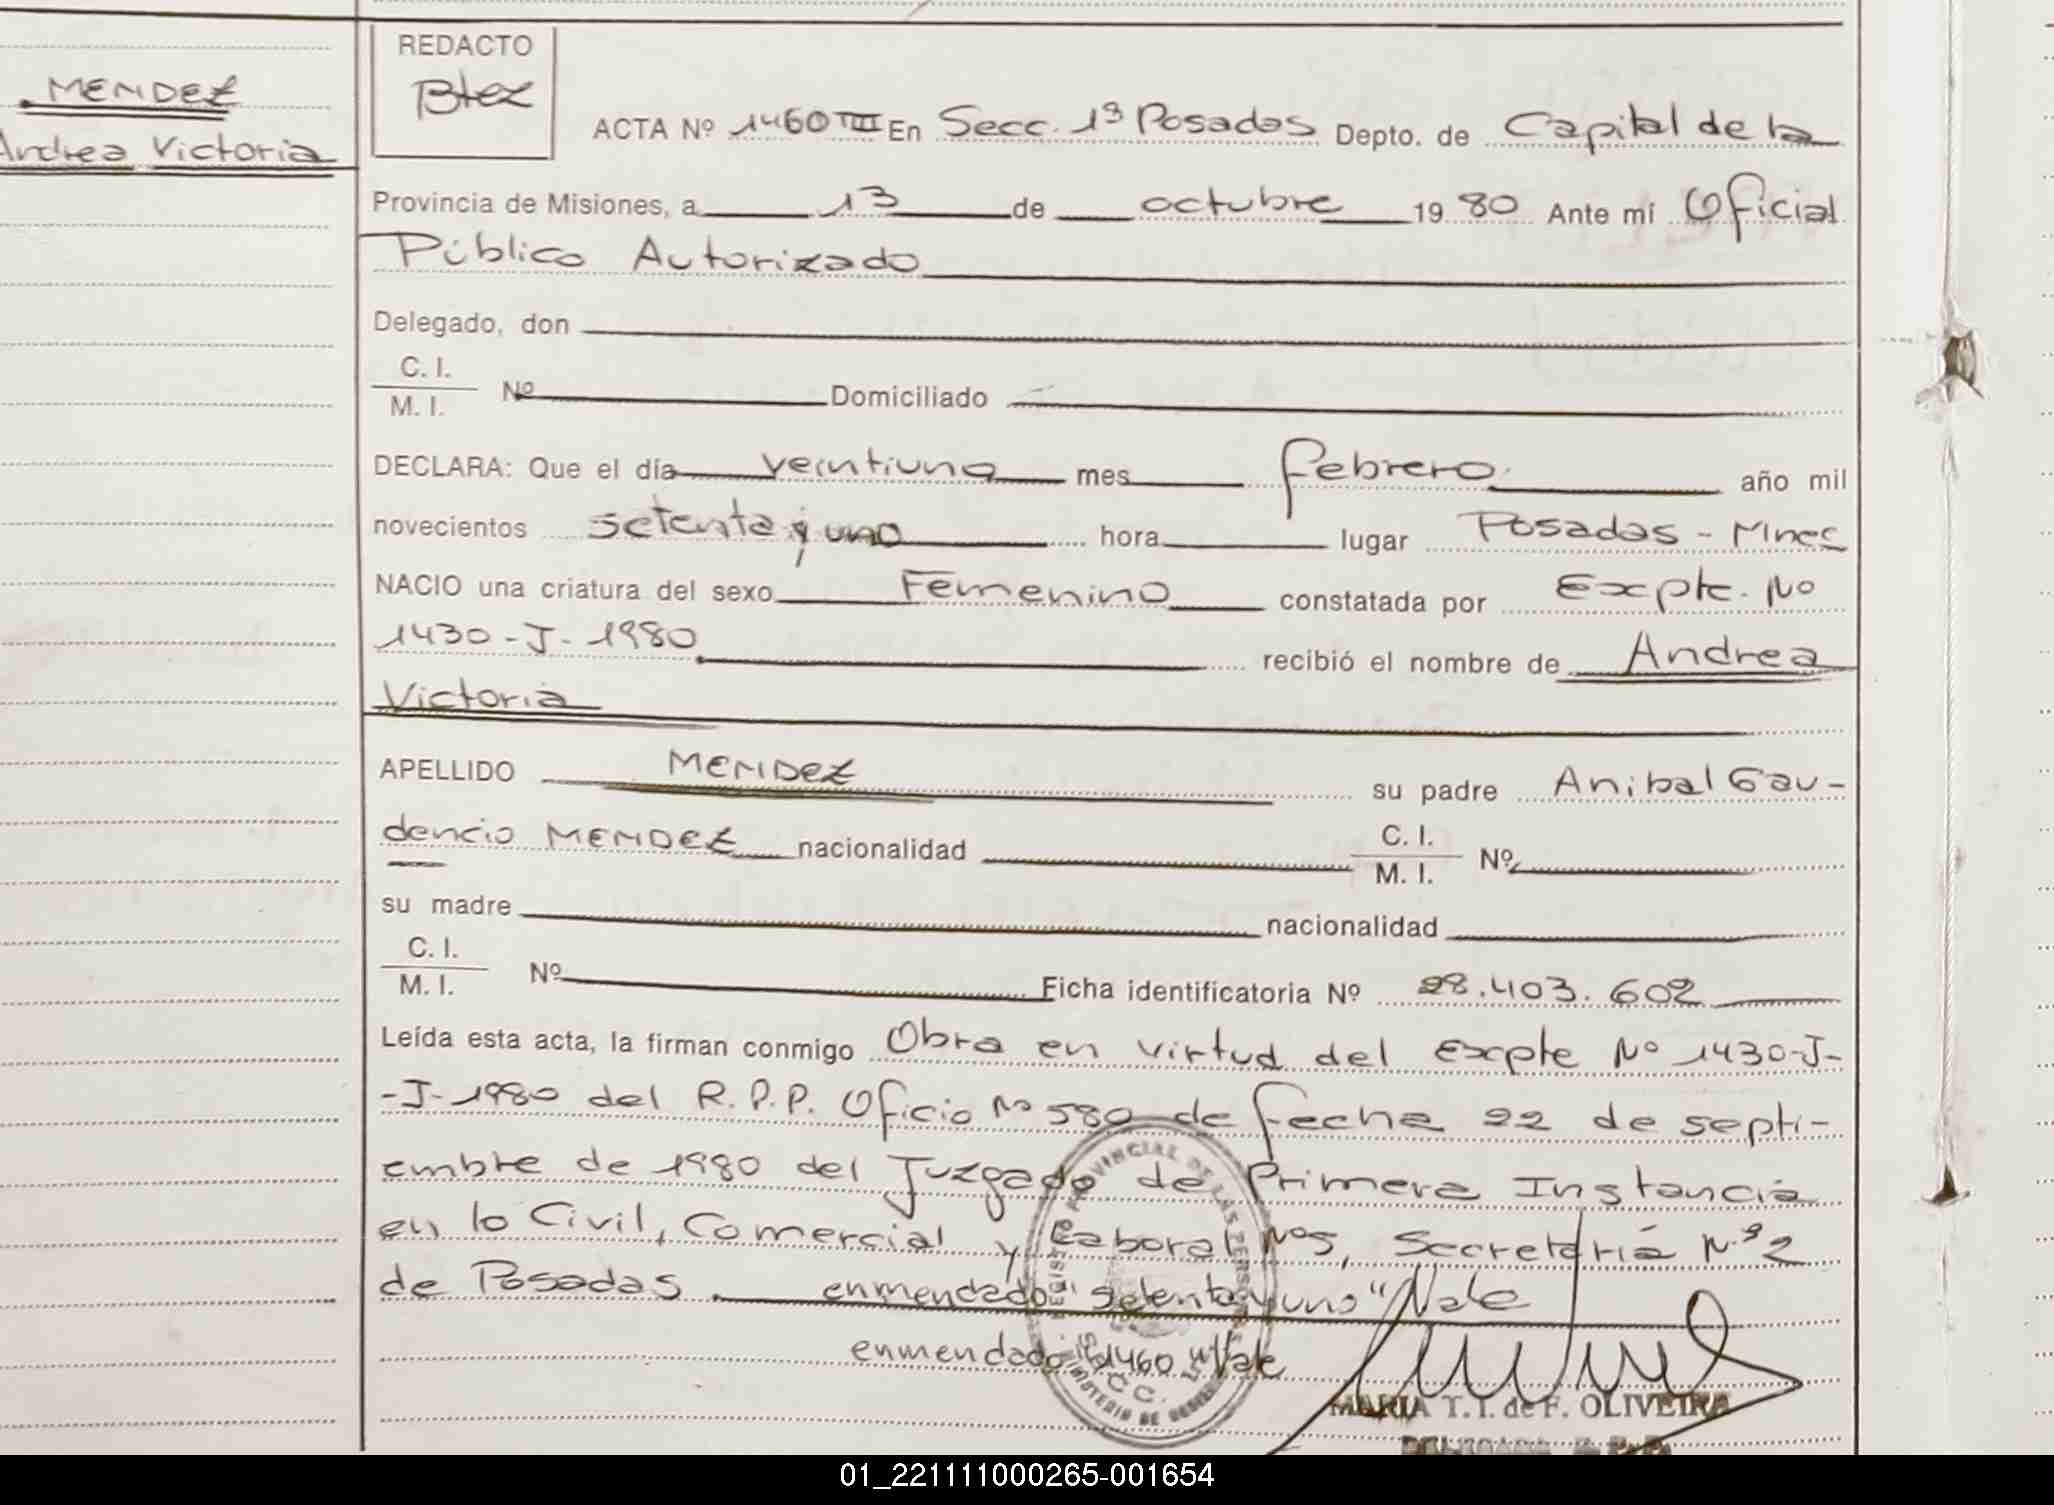 MENDEZ
Andrea Victoria
REDACTO
Btez
ACTA Nº 1460 TIII En Secc. 1ª Posadas Depto. de Capital de la
Provincia de Misiones, a 13 de octubre 19 80 Ante mí Oficial
Público Autorizado
Delegado, don
C. I.
M. I. Nº Domiciliado
DECLARA: Que el día veintiuno mes febrero año mil
novecientos setenta y uno hora lugar Posadas - Mnes
NACIO una criatura del sexo Femenino constatada por Expte. Nº
1430-J-1980 recibió el nombre de Andrea
Victoria
APELLIDO MENDEZ su padre Anibal Gau-
dencio MENDEZ nacionalidad C. I.
M. I. Nº
su madre nacionalidad
C. I.
M. I. Nº Ficha identificatoria Nº 28.403.602
Leída esta acta, la firman conmigo Obra en virtud del Expte Nº 1430-J-
-J-1980 del R.P.P. Oficio Nº 580 de fecha 22 de septi-
embre de 1980 del Juzgado de Primera Instancia
en lo Civil, Comercial y Laboral Nº5, Secretaría Nº2
de Posadas. enmendado "setenta y uno" Vale
enmendado "1460" Vale
MARIA T. I. de F. OLIVEIRA
01_221111000265-001654